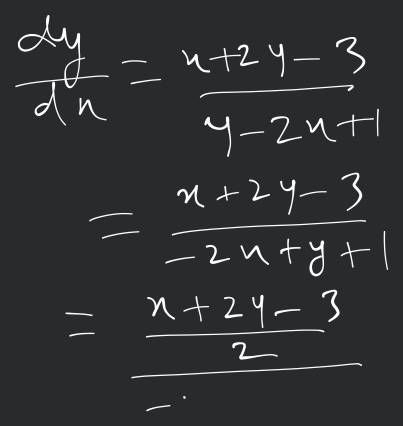 dy/dx = (x+2y-3)/(y-2x+1)
= (x+2y-3)/(-2x+y+1)
= ((x+2y-3)/2)/(-